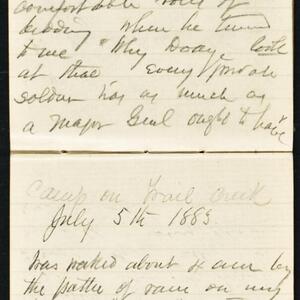 comfortable rolls of
bedding when he turned
to me "Why Doary, look
at that Every private
soldier has as much as
a major Genl ought to have
Camp on Trail Creek
July 5th 1883.
Was waked about 4 am by
the patter of rain on my